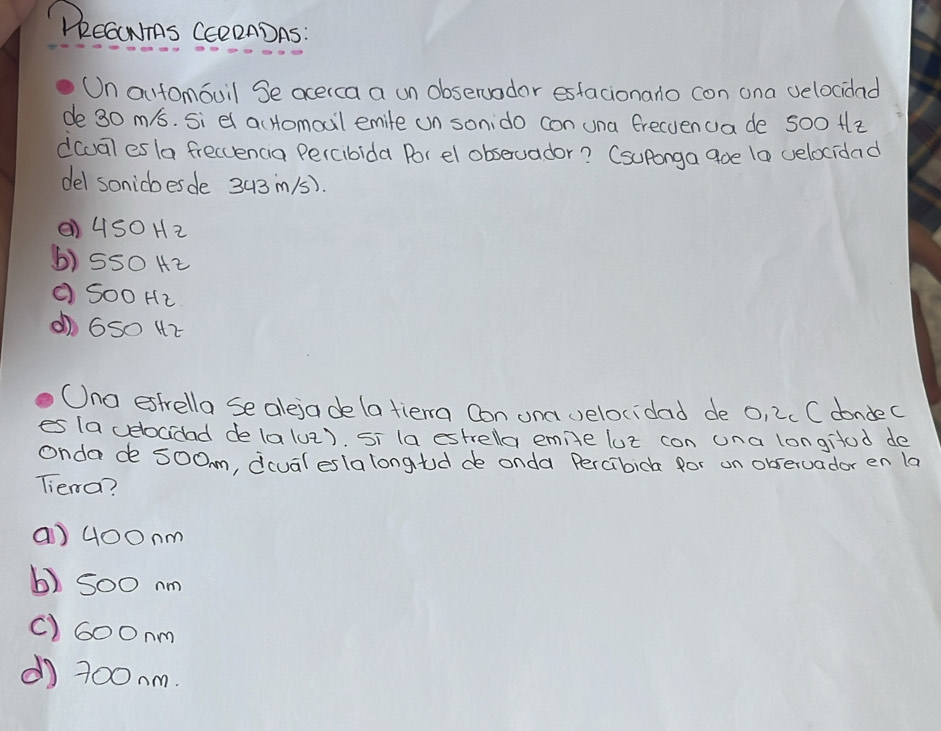 PREGUNTAS CERRADAS:
• Un automóvil Se acerca a un observador estacionario con una velocidad
de 30 m/s. Si el automovil emite un sonido con una frecuencia de 500 Hz
¿cuál es la frecuencia Percibida Por el observador? (suponga que la velocidad
del sonido es de 343 m/s).
a) 450 Hz
b) 550 Hz
c) 500 Hz
d) 650 Hz
• Una estrella se aleja de la tierra Con una velocidad de 0,2c (donde c
es la velocidad de la luz). Si la estrella emite luz con una longitud de
onda de 500nm, ¿cuál es la longitud de onda Percibida por un observador en la
Tierra?
a) 400 nm
b) 500 nm
c) 600 nm
d) 700 nm.